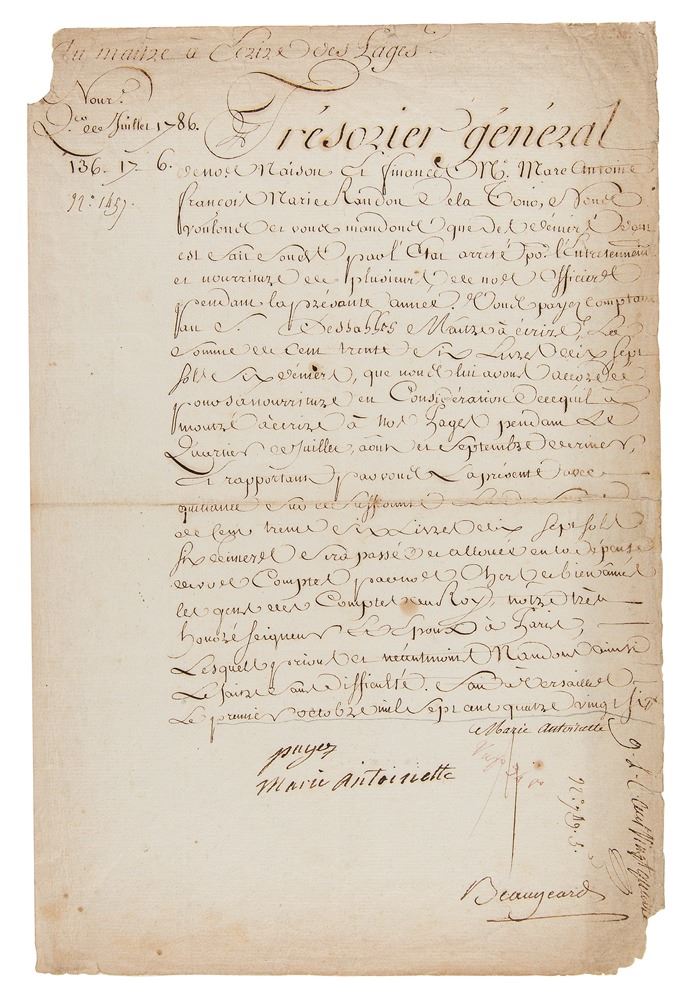 Au maitre à Ecrire des Pages
Nourre.
Qer. de Juillet 1786.
Trésorier général
136. 17. 6.
de nos Maison et finances Me. Marc Antoine
N.º 145
françois Marie Randon de la Tour, Nous
voulons et vous mandons que des deniers
est fait fonds par l'Etat arresté pr. l'Entretenement
et nourriture de plusieurs de nos Officiers
pendant la présente année. Vous payez comptant
au S. Dessalles Maitre à écrire, La
Somme de Cent trente Six Livres dix sept
sols six deniers, que nous lui avons accordé
pour sa nourriture en Considération de ce qu'il a
montré à écrire à nos Pages pendant Le
Quartier de Juillet, aoust et Septembre dernier,
Et rapportant par vous La présente avec
quittance sur ce suffisante
de Cent trente Six Livres dix sept sols
six deniers Sera passée et allouée en la dépense
de vos Comptes par nos Chers et bien amés
les gens des Comptes du Roy, notre très
honoré Seigneur Et Epoux à Paris,
Lesquels prions et néantmoins Mandons ainsi
Le faire sans difficulté. Car à Versailles
Le premier octobre mil sept cent quatre vingt six
Marie Antoinette
payez
Marie Antoinette
Beaugeard